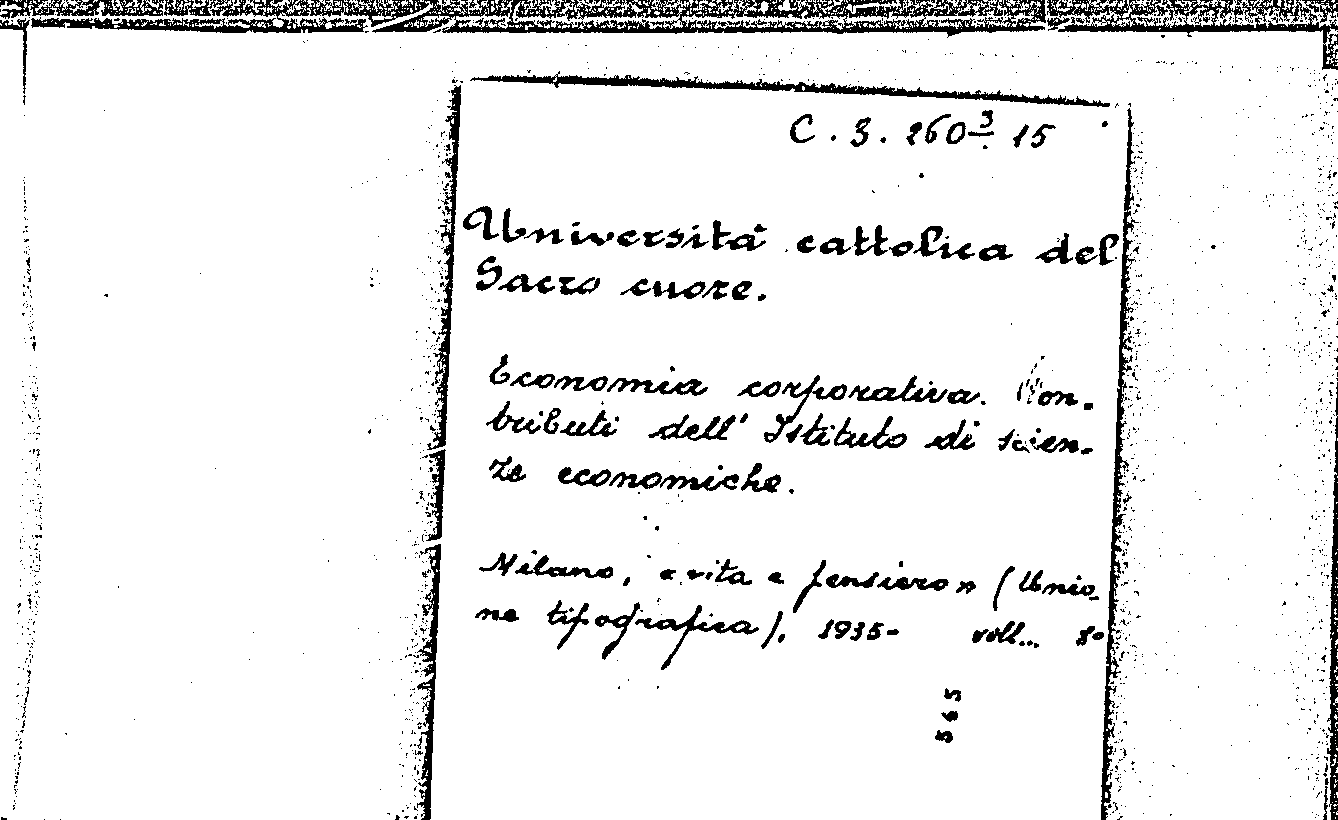 C. 3. 260 3/. 15
Università cattolica del
Sacro cuore.
Economia corporativa. Con-
tributi dell' Istituto di scien-
ze economiche.
Milano, « vita e pensiero » (Unio-
ne tipografica), 1935- voll... 8°
565